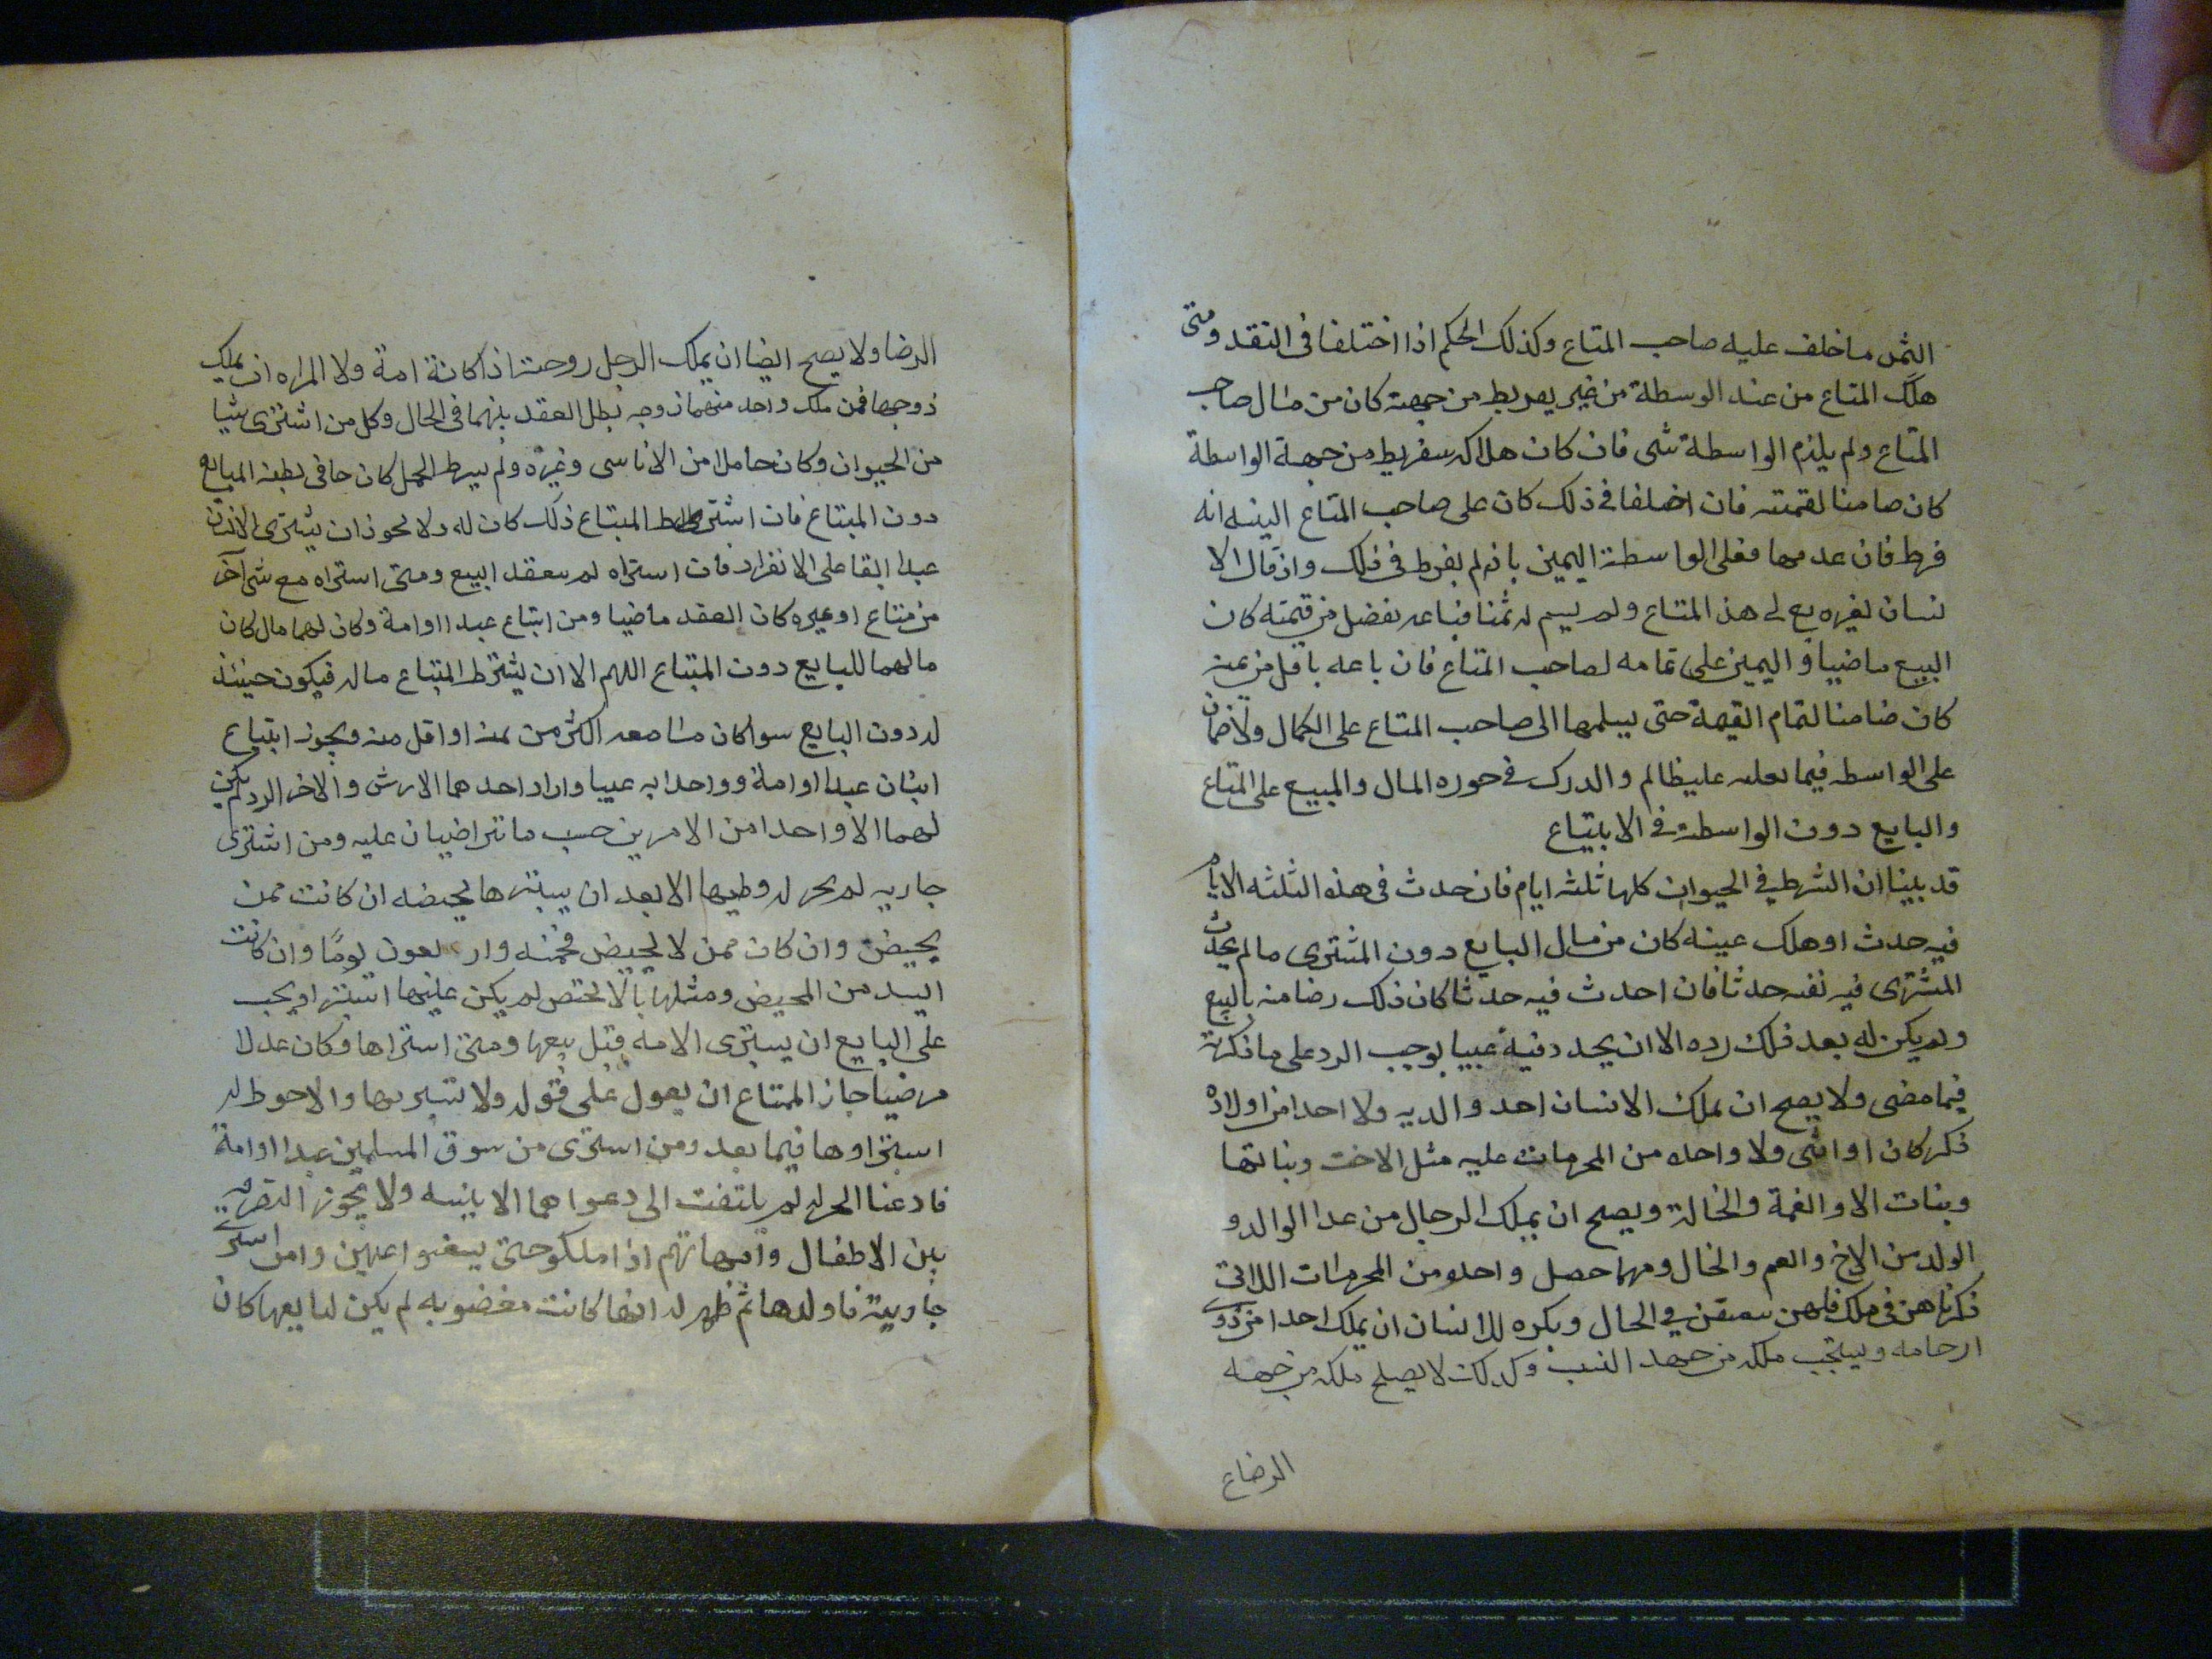 الثمن ما خلف عليه صاحب المتاع وكذلك الحكم اذا اختلفا فى النقد ومتى
هلك المتاع من عند الوسطة من غير يعربط من جهته كان من مال صاحب
المتاع ولم يلزم الواسطة شى فان كان هلاكه سفريط من جهة الواسطة
كان ضامنا لقمته فان اختلفا فى ذلك كان على صاحب المتاع البينه انه
فرط فان عدمها فعلى الواسطة اليمين بانه لم يفرط فى ذلك واذ قال الا
نسان لغيره بع لى هذا المتاع ولم يسم له ثمنا فباعه بفضل من قيمته كان
البيع ماضيا و اليمين على تمامه لصاحب المتاع فان باعه باقل من ثمنه
كان ضامنا لتمام القيمة حتى يسلمها الى صاحب المتاع على الكمال ولا ضمان
على الواسطه فيما عليظالم والدرك فى حوره المال والمبيع على المتاع
والبايع دون الواسطة فى الابتياع
قد بينا ان الشرط فى الحيوان كلها ثلثه ايام فان حدث فى هذه الثلثه الايام
فيه حدث او هلك عينه كان من مال البايع دون المشترى ما لم يحدث
المشترى فيه نفسه حدثا فان احدث فيه حدثا كان ذلك رضا منه بالبيع
ولم يكن له بعد ذلك رده الا ان يجد فيه عيبا يوجب الرد على ما ذكرناه
فيما مضى ولا يصح ان يملك الانسان احد والديه ولا احدا من اولاده
ذكر كان او انثى ولا واحده من المحرمات عليه مثل الاخت وبناتها
وبنات الا والعمة والخالة ويصح ان يملك الرجال من عدا الوالد و
الولد من الاخ والعم والخال ومهما حصل واحده من المحرمات اللاتى
ذكرناهن فى ملك فلهن سعقن فى الحال ويكره للانسان ان يملك احدا من ذوى
ارحامه ويستحب ملكه من جهه النسب وكذلك لا يصلح ملكه من جهه
الرضاع
الرضا ولا يصح ايضا ان يملك الرجل زوجته اذا كانة امة ولا المراه ان يملك
زوجها فمن ملك واحد منهما زوجه بطل العقد بينهما فى الحال وكل من اشترى شيا
من الحيوان وكان حاملا من الاناسى وغيره ولم يشرط الحمل كان ما فى بطنه المبايع
دون المبتاع فان اشترط المبتاع ذلك كان له ولا يجوز ان يشترى الانسان
عبدا ابقا على الانفراد فان استراه لم ينعقد البيع ومتى استراه مع شى آخر
من متاع او غيره كان العقد ماضيا ومن ابتاع عبدا او امة وكان لهما مال كان
مالهما للبايع دون المبتاع اللهم الا ان يشترط المبتاع ماله فيكون حينئذ
له دون البايع سوا كان ما معه اكثر من ثمنه او اقل منه ويجوز ابتياع
اثنان عبدا او امة ووواحدا به عيبا واراد احدهما الارش والاخر الرد لم يكن
لهما الا واحدا من الامرين حسب ما تراضيان عليه ومن اشترى
جاريه لم يحز له وطيها الا بعد ان يستبرها بحيضه ان كانت ممن
يحيض وان كان ممن لا يحيض فخمسه وار بعون يومًا وان كانت
ايسد من المحيض ومثلها بالا تختص لم يكن عليها استبرا ويجب
على البايع ان يستبرى الامه قبل بيعها ومتى استراها وكان عدلا
مرضيا جاز المتاع ان يعول على قوله ولا يستبرىها والاحوط له
استبراوها فيما بعد ومن استرى من سوق المسلمين عبدا او امة
فادعنا الحريه لم يلتفت الى دعواهما الا ببينه ولا يجوز التفرقه
بين الاطفال وامهاتهم اذا ملكو حتى يستغنوا عنهن وامن استرى
جاريته فاولدها ثم ظهر له انها كانت مغضوبه لم يكن لبايعها كان